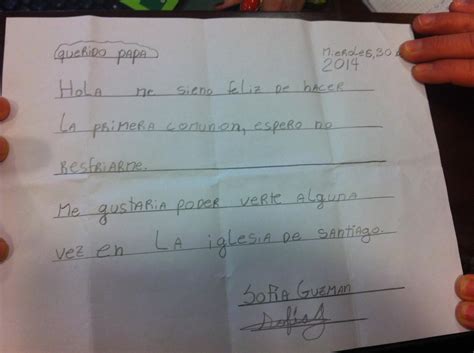 QUERIDO PAPA
Miercoles, 30
2014
HOLA me sieno feliz de HACER
LA primera comunon, espero no
RESFRIARME.
Me gustaria poder verte alguna
vez en LA iglesia de SANTIAGO.
SOFIA GUZMAN